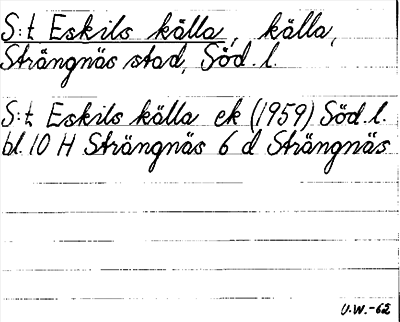 S:t Eskils källa, källa,
Strängnäs stad, Söd. l.
S:t Eskils källa ek (1959) Söd. l.
bl. 10 H Strängnäs 6 d Strängnäs
U.W.-62